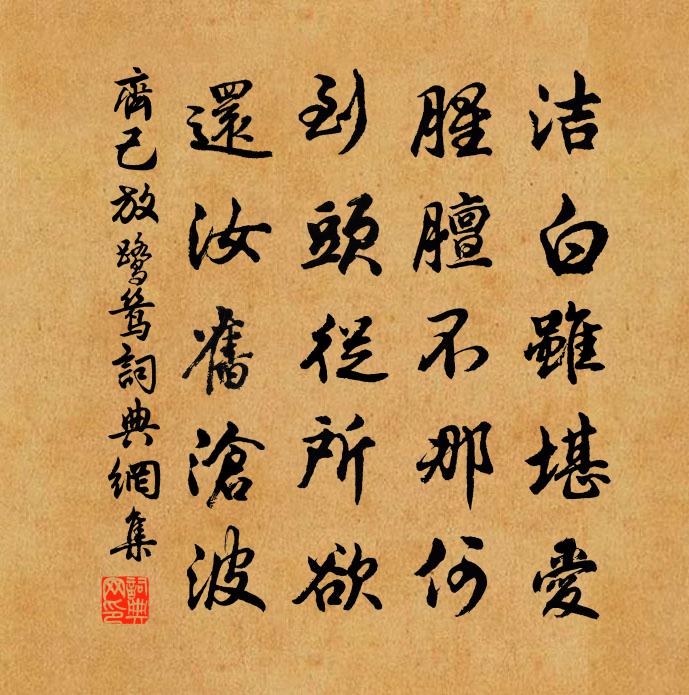 洁白雖堪愛
腥膻不那何
到頭從所欲
還汝舊滄波
齊己放鷺鷥詞典網集
詞典网印